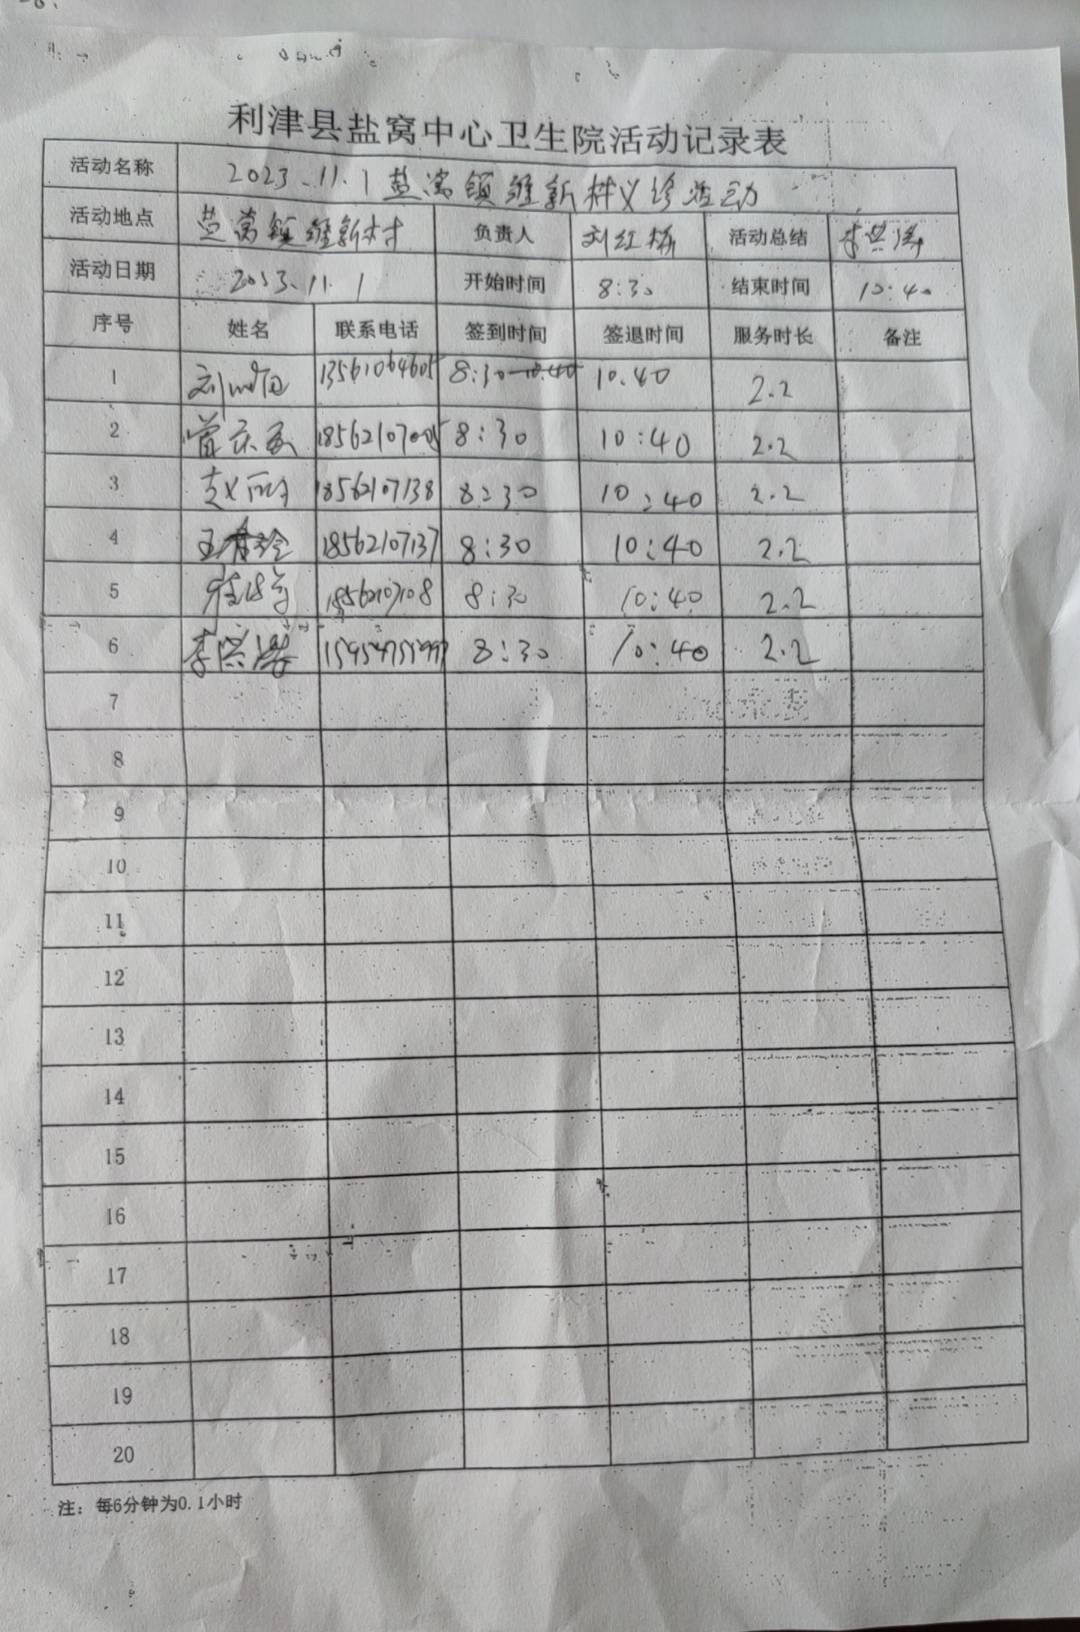 利津县盐窝中心卫生院活动记录表
活动名称 2023.11.1盐窝镇维新村义诊活动
活动地点 盐窝镇维新村 负责人 刘红梅 活动总结
活动日期 2023.11.1 开始时间 8:30 结束时间 10:40
序号 姓名 联系电话 签到时间 签退时间 服务时长 备注
1 13561064605 8:30 10.40 2.2
2 8:30 10:40 2.2
3 赵丽 18562107138 8:30 10:40 2.2
4 18562107137 8:30 10:40 2.2
5 8:30 10:40 2.2
6 8:30 10:40 2.2
7
8
9
10
11
12
13
14
15
16
17
18
19
20
注：每6分钟为0.1小时